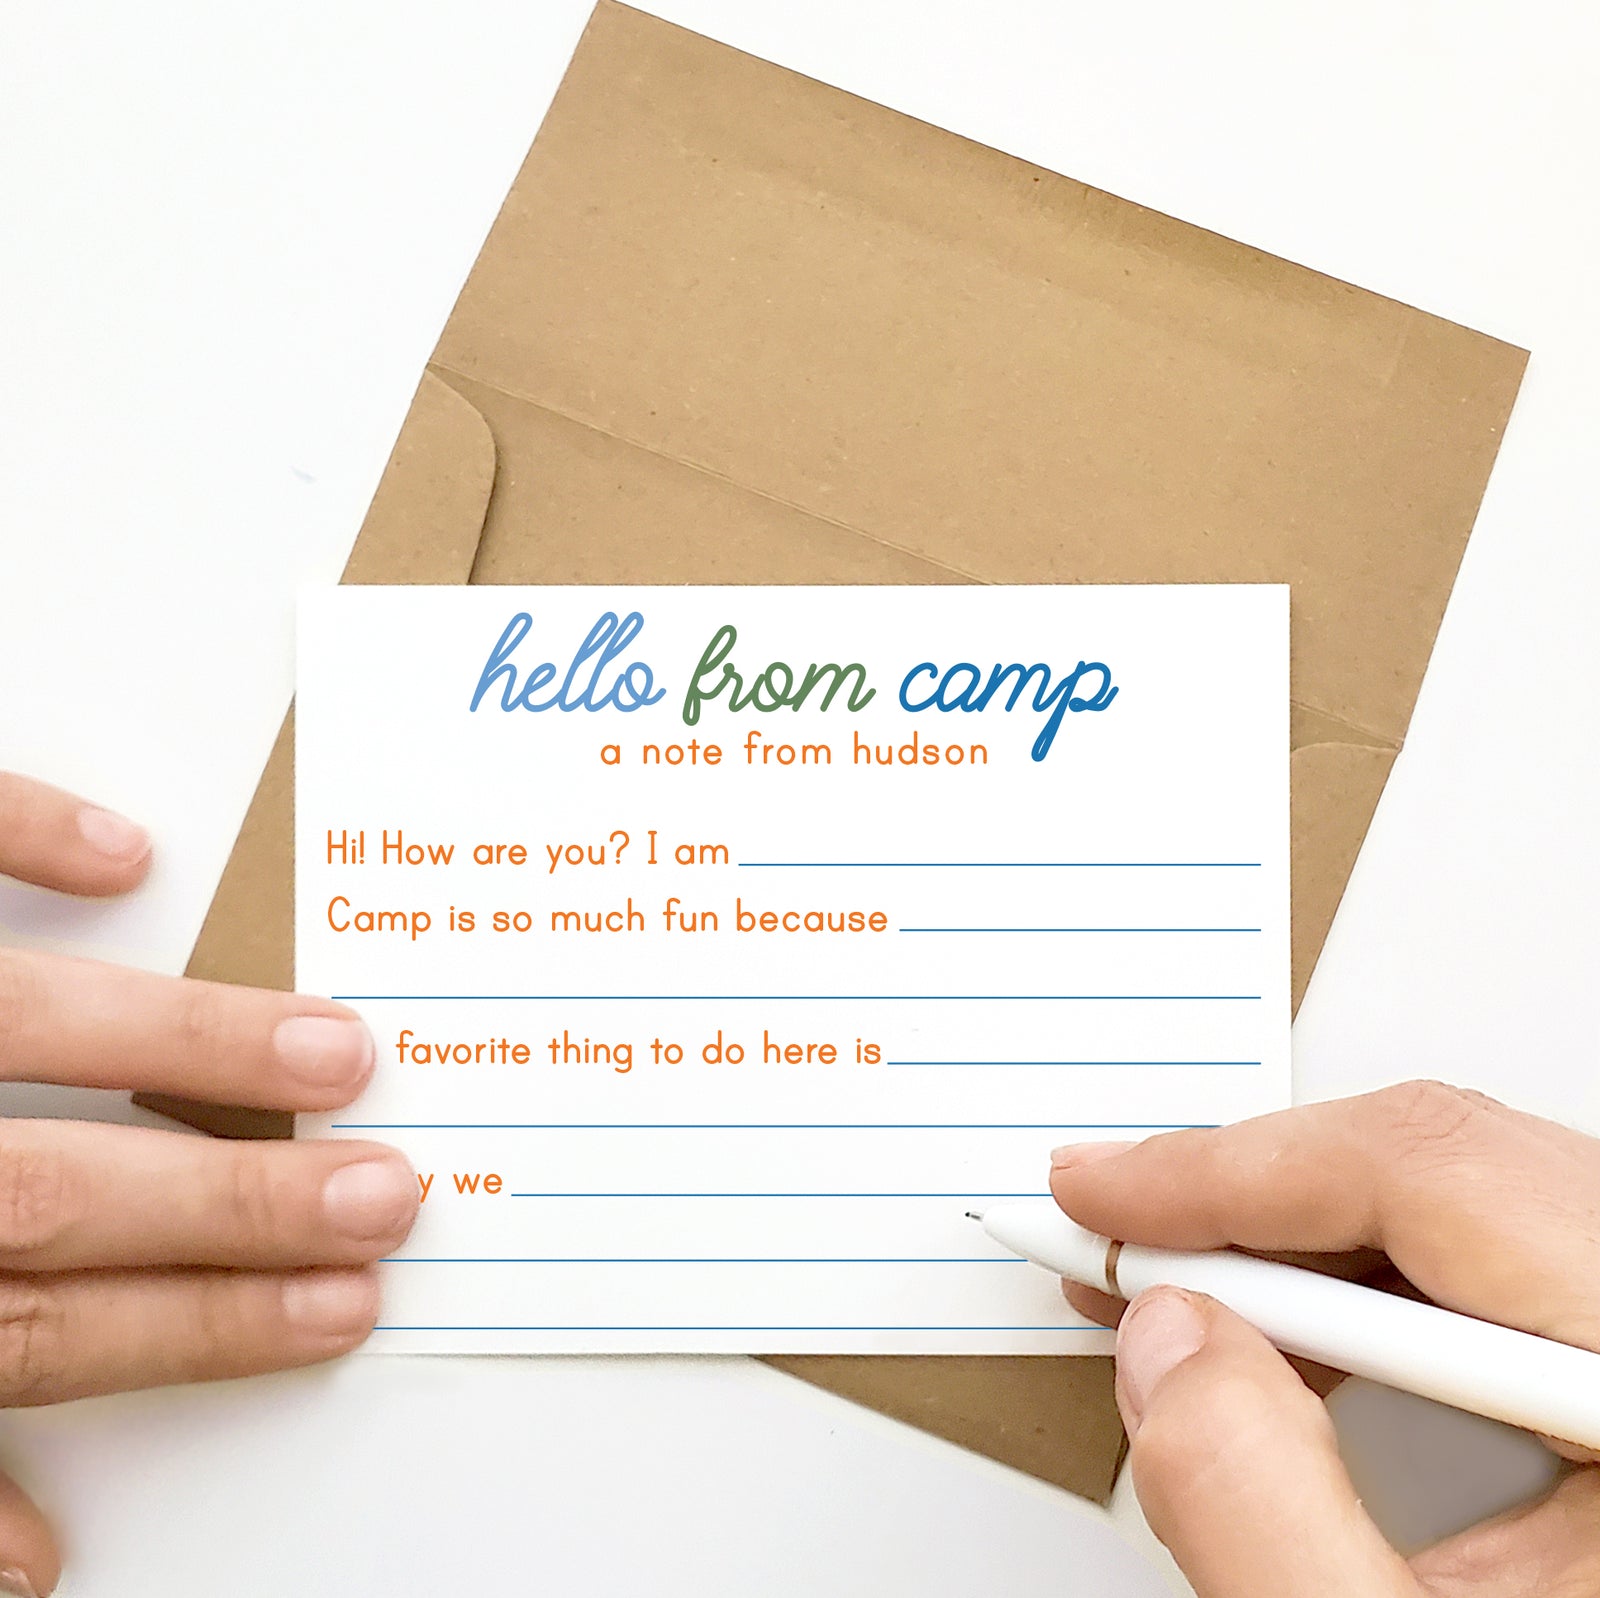 hello from camp
a note from hudson
Hi! How are you? I am
Camp is so much fun because
favorite thing to do here is
y we